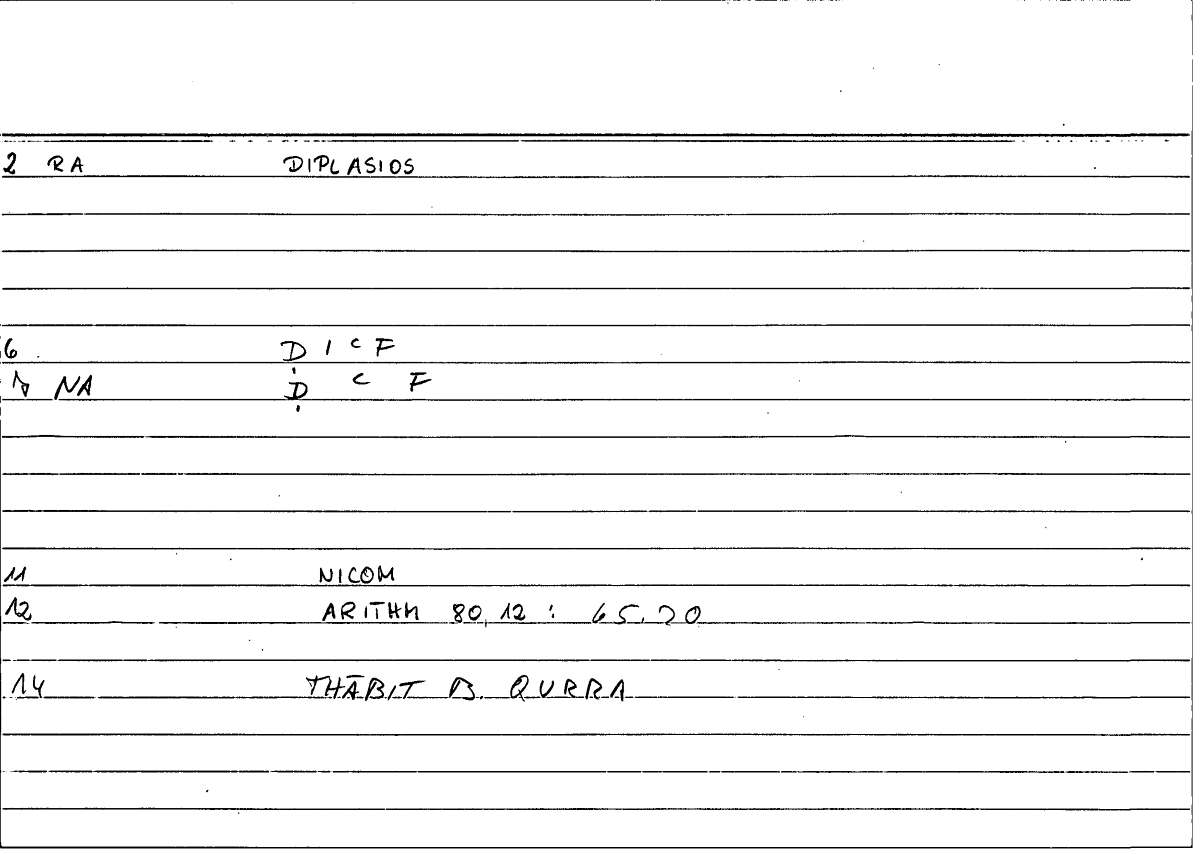 2 RA DIPLASIOS
6 D I C F
NA Ḍ C F
11 NICOM
12 ARITHM 80,12 : 65.20
14 THĀBIT B. QURRA